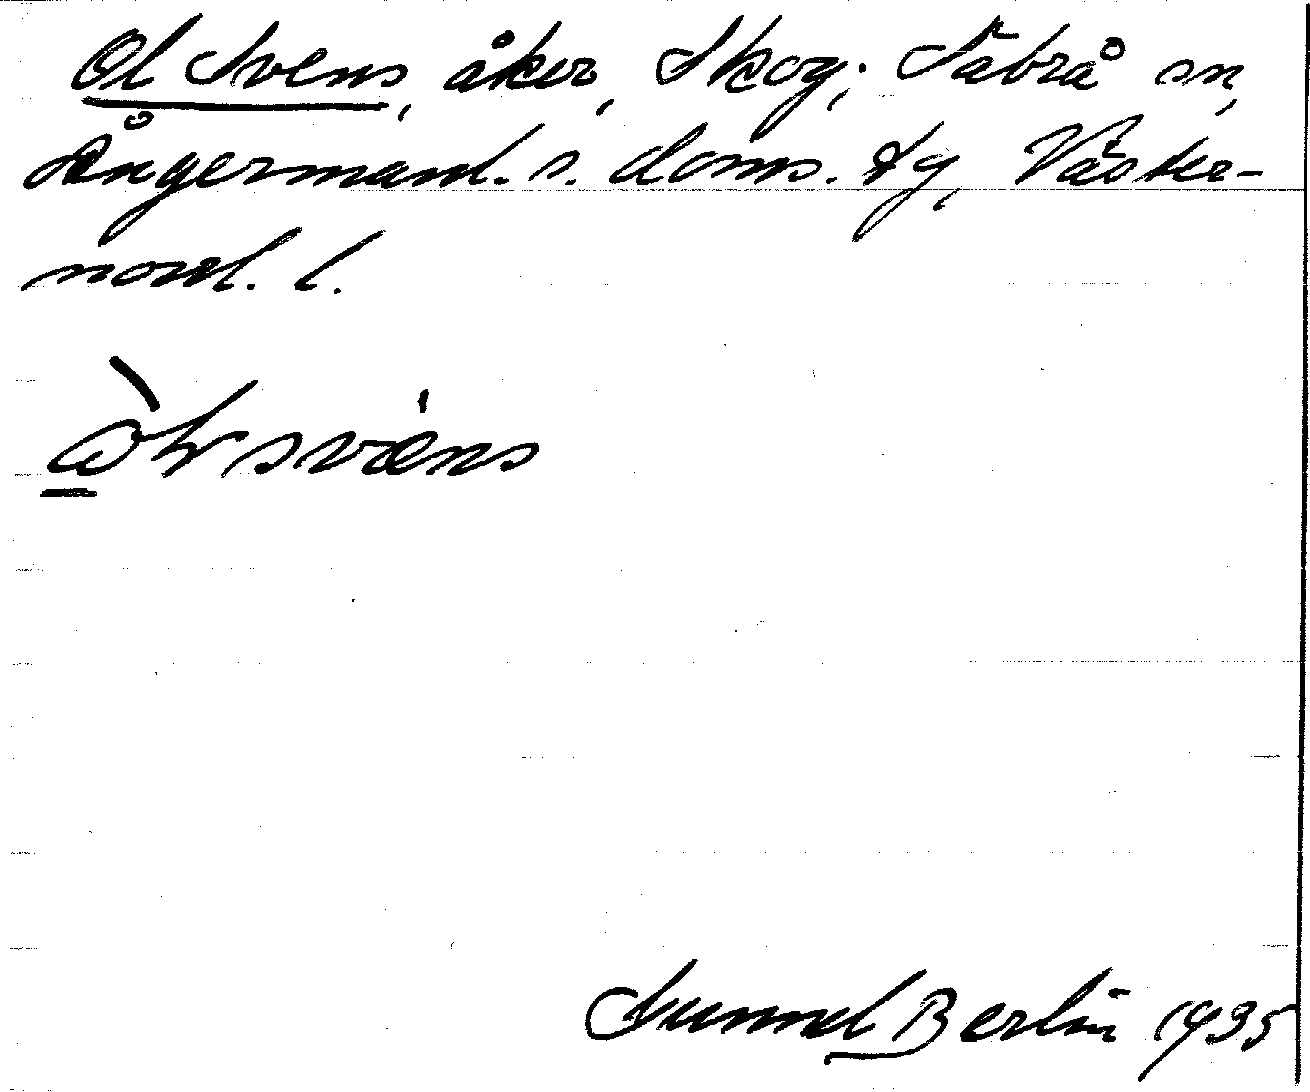 Ol Svens, åker, Skog; Säbrå sn,
Ångermanl. s. doms. tg, Väster-
norrl. l.
Gunnel Berlin 1935